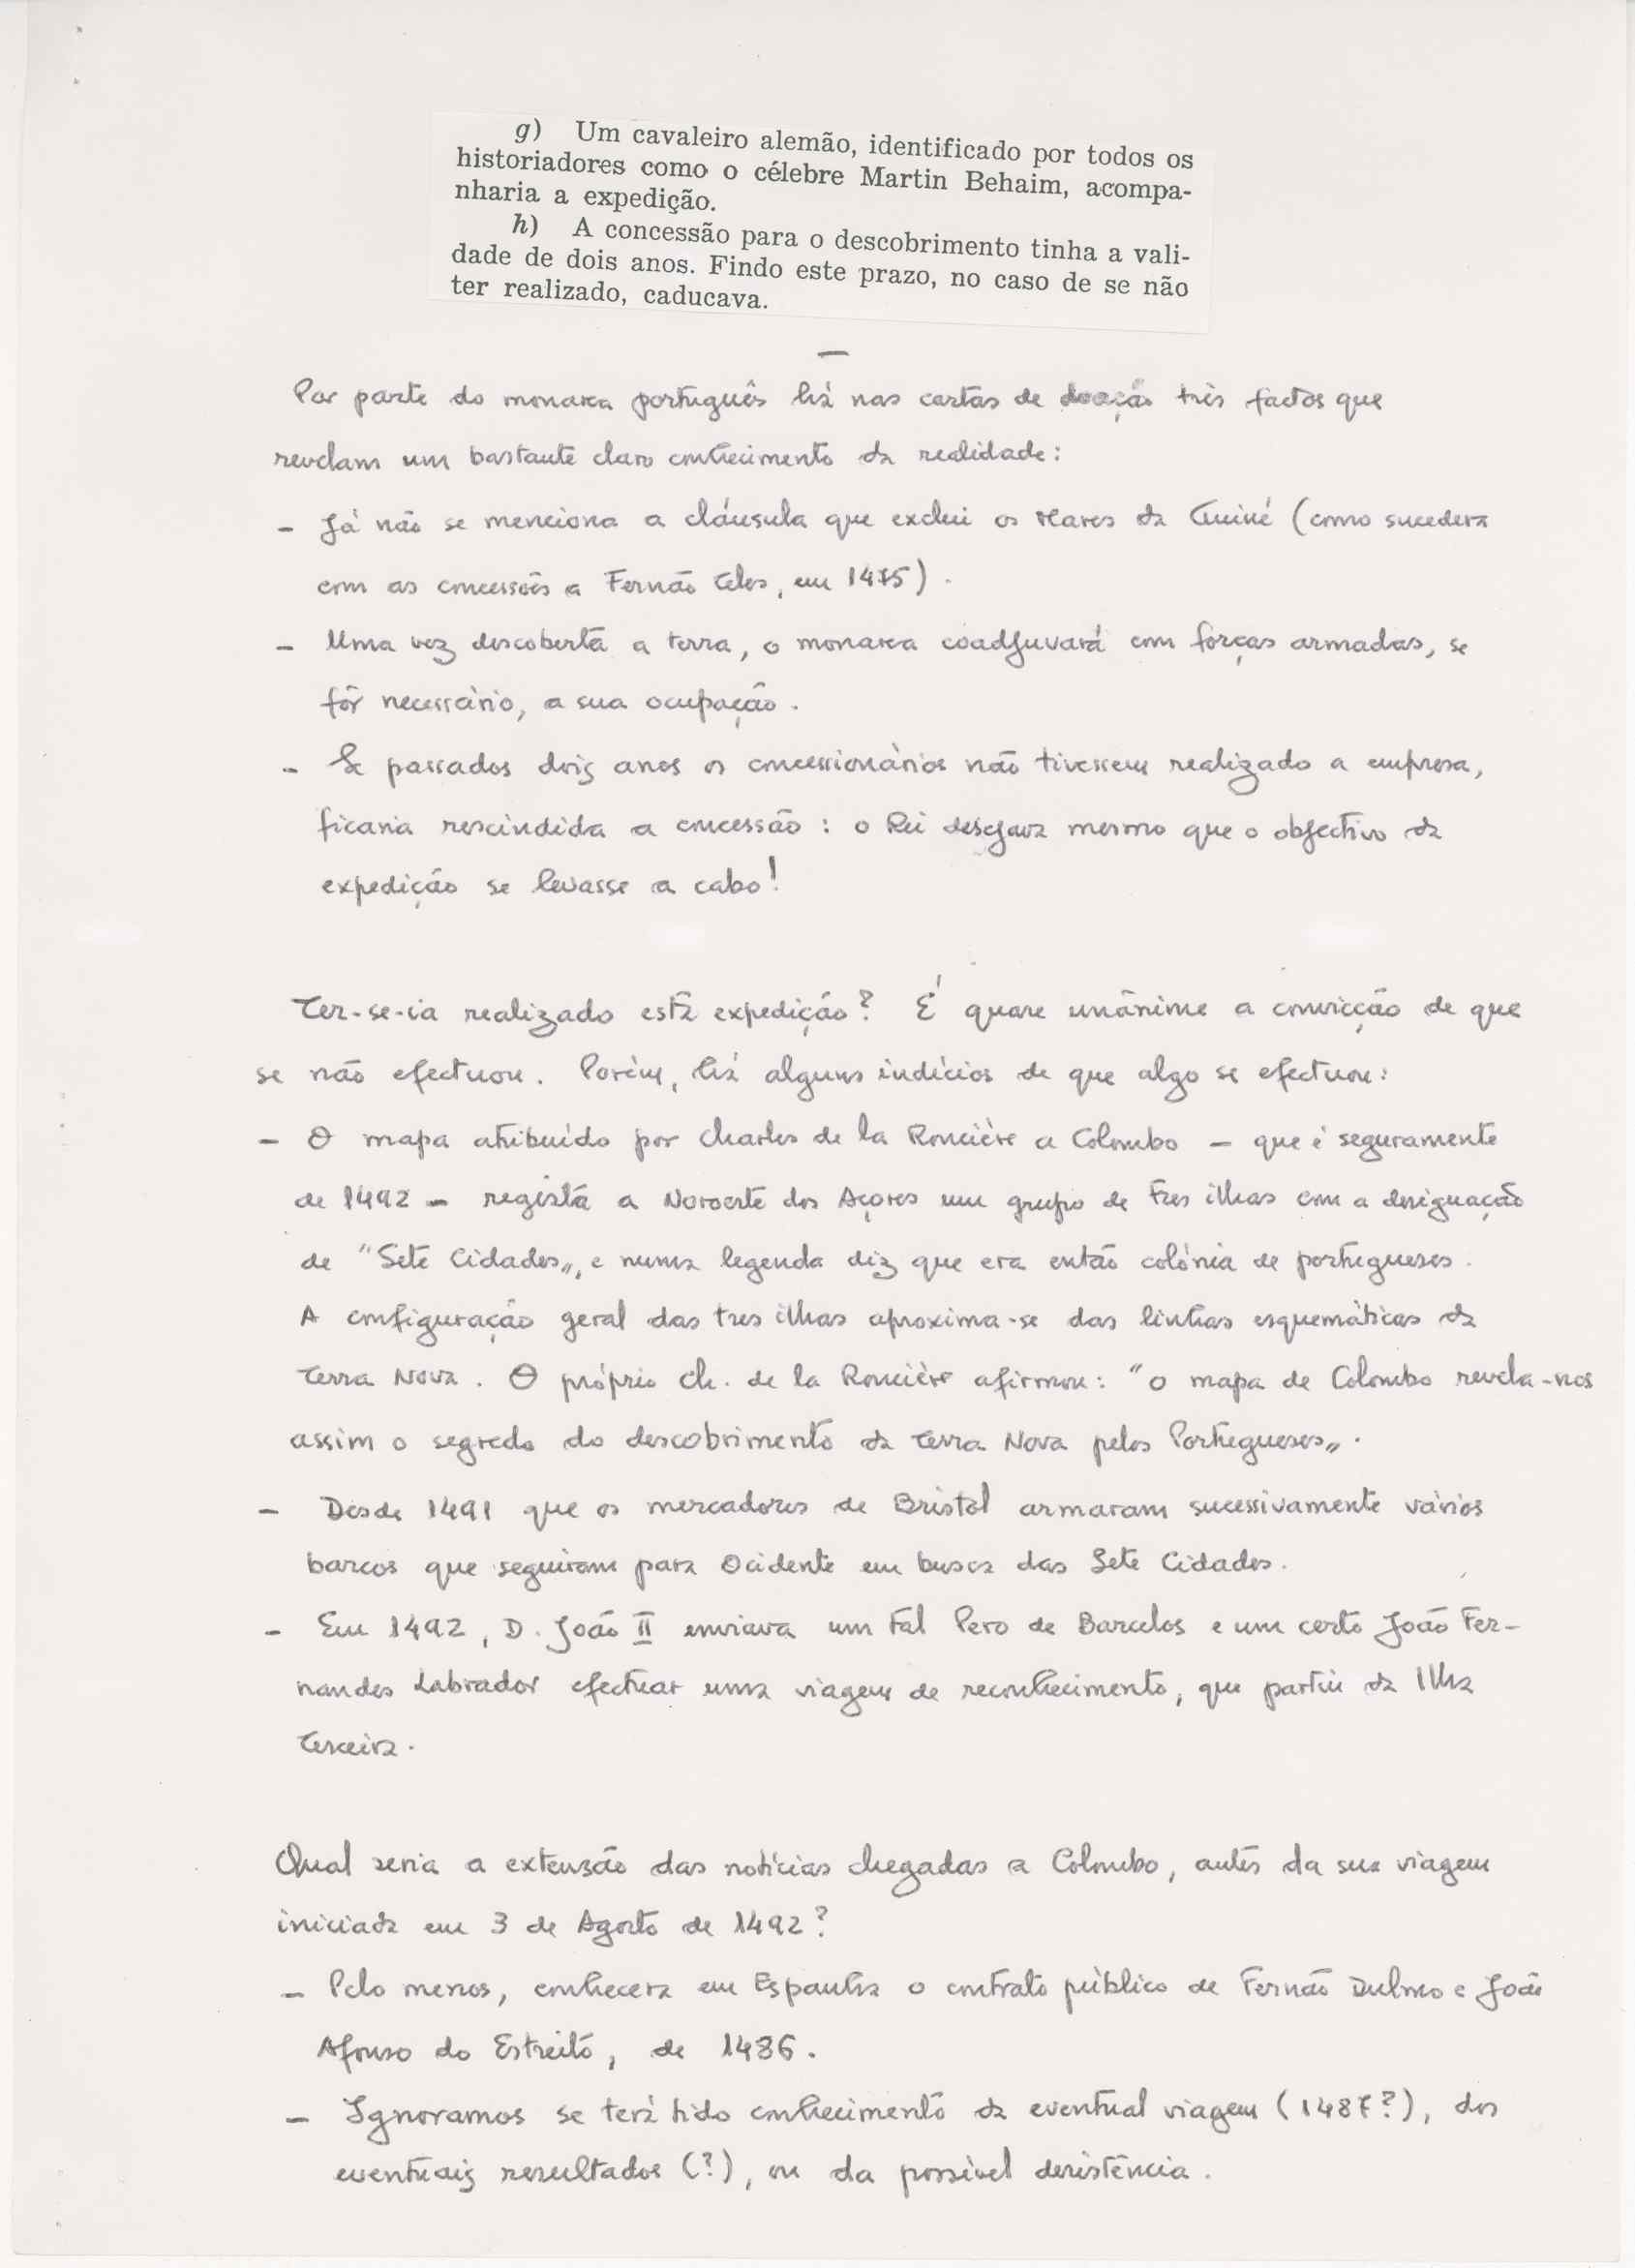 g) Um cavaleiro alemão, identificado por todos os
historiadores como o célebre Martin Behaim, acompa-
nharia a expedição.
h) A concessão para o descobrimento tinha a vali-
dade de dois anos. Findo este prazo, no caso de se não
ter realizado, caducava.
—
Por parte do monarca português há nas cartas de doação três factos que
revelam um bastante claro conhecimento da realidade:
- Já não se menciona a cláusula que exclui os Mares da Guiné (como sucedera
com as concessões a Fernão Teles, em 1475).
- Uma vez descoberta a terra, o monarca coadjuvará com forças armadas, se
fôr necessário, a sua ocupação.
- Se passados dois anos os concessionários não tivessem realizado a empresa,
ficaria rescindida a concessão: o Rei desejava mesmo que o objectivo da
expedição se levasse a cabo!
Ter-se-ia realizado esta expedição? É quase unânime a convicção de que
se não efectuou. Porém, há alguns indícios de que algo se efectuou:
- O mapa atribuído por Charles de la Roncière a Colombo - que é seguramente
de 1492 - regista a Noroeste dos Açores um grupo de tres ilhas com a designação
de "Sete Cidades", e numa legenda diz que era então colónia de portugueses.
A configuração geral das tres ilhas aproxima-se das linhas esquemáticas da
Terra Nova. O próprio Ch. de la Roncière afirmou: "o mapa de Colombo revela-nos
assim o segredo do descobrimento da Terra Nova pelos Portugueses".
- Desde 1491 que os mercadores de Bristol armaram sucessivamente vários
barcos que seguiram para Ocidente em busca das Sete Cidades.
- Em 1492, D. João II enviava um tal Pero de Barcelos e um certo João Fer-
nandes Labrador efectuar uma viagem de reconhecimento, que partiu da Ilha
Terceira.
Qual seria a extensão das notícias chegadas a Colombo, antes da sua viagem
iniciada em 3 de Agosto de 1492?
- Pelo menos, conhecera em Espanha o contrato público de Fernão Dulmo e João
Afonso do Estreito, de 1486.
- Ignoramos se terá tido conhecimento da eventual viagem (1487?), dos
eventuais resultados (?), ou da possível desistência.